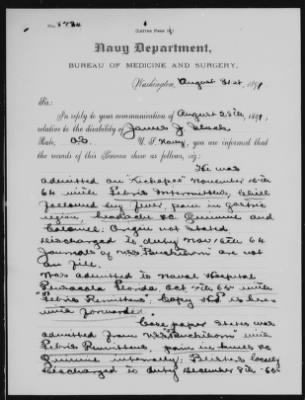 Navy Department,
BUREAU OF MEDICINE AND SURGERY,
Washington, August 31st, 1891
Sir:
In reply to your communication of August 28th, 1891,
relative to the disability of James J.
Rate, U. S. Navy, you are informed that
the records of this Bureau show as follows, viz:
He was
admitted on "Kickapoo" November
64 with Febris Intermittens, chill
followed by fever, pain in gastric
region, headache &c Quinine and
Calomel. Origin not stated.
Discharged to duty Nov 64
Journals of USS are not
on file.
Was admitted to Naval Hospital
Pensacola Florida Oct 7th 65 with
"Febris Remittens". Copy is here-
with forwarded.
Case paper states was
admitted from USS with
Febris Remittens, pain in &c
Quinine internally. Blisters locally
Discharged to duty December 8th - 65